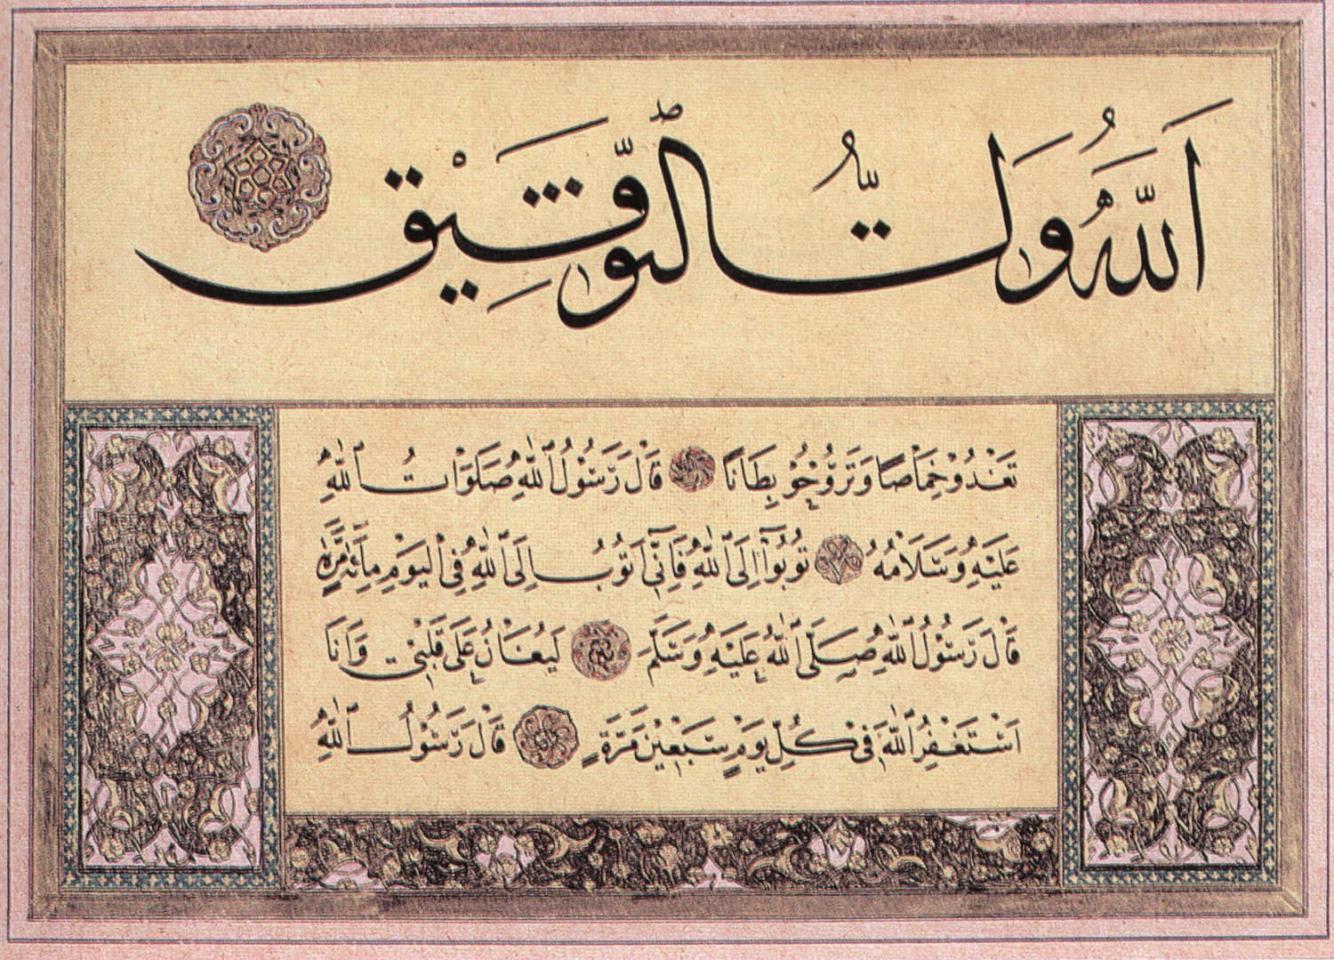 اَللّٰهُ وَلِيُّ التَّوْفِيْقِ
تَغْدُوْ خِمَاصًا وَتَرُوْحُوْ بِطَانًا قَالَ رَسُوْلُ اللّٰهِ صَلَوَاتُ اللّٰهِ
عَلَيْهِ وَسَلَامُهُ تُوْبُوْا اِلَى اللّٰهِ فَاِنِّىْ اَتُوْبُ اِلَى اللّٰهِ فِى الْيَوْمِ مِائَةَ مَرَّةٍ
قَالَ رَسُوْلُ اللّٰهِ صَلَّى اللّٰهُ عَلَيْهِ وَسَلَّمَ لَيُغَانُ عَلٰى قَلْبِىْ وَاَنَا
اَسْتَغْفِرُ اللّٰهَ فِىْ كُلِّ يَوْمٍ سَبْعِيْنَ مَرَّةٍ قَالَ رَسُوْلُ اللّٰهِ